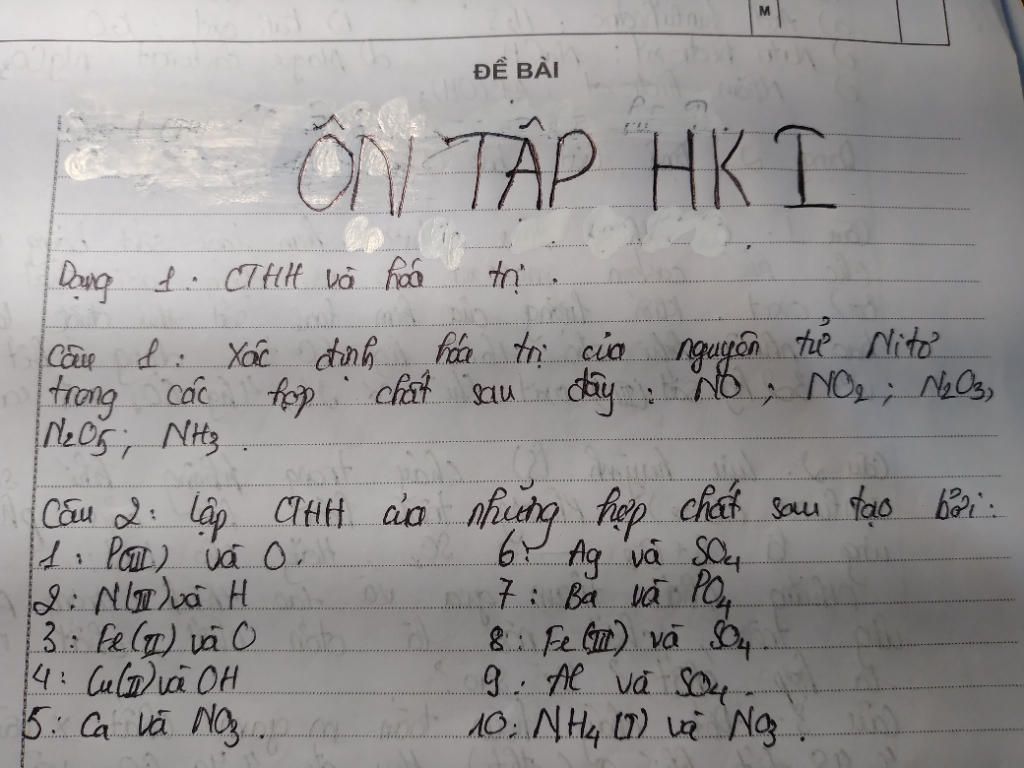 M
ĐỀ BÀI
ÔN TẬP HK I
Dạng 1: CTHH và hóa trị.
Câu 1: Xác định hóa trị của nguyên tử Nitơ
trong các hợp chất sau đây: NO; NO2; N2O3,
N2O5; NH3.
Câu 2: Lập CTHH của những hợp chất sau tạo bởi:
1: P(III) và O. 6: Ag và SO4
2: N(III) và H 7: Ba và PO4
3: Fe(II) và O 8: Fe(III) và SO4.
4: Cu(II) và OH 9: Al và SO4.
5: Ca và NO3. 10: NH4(I) và NO3.